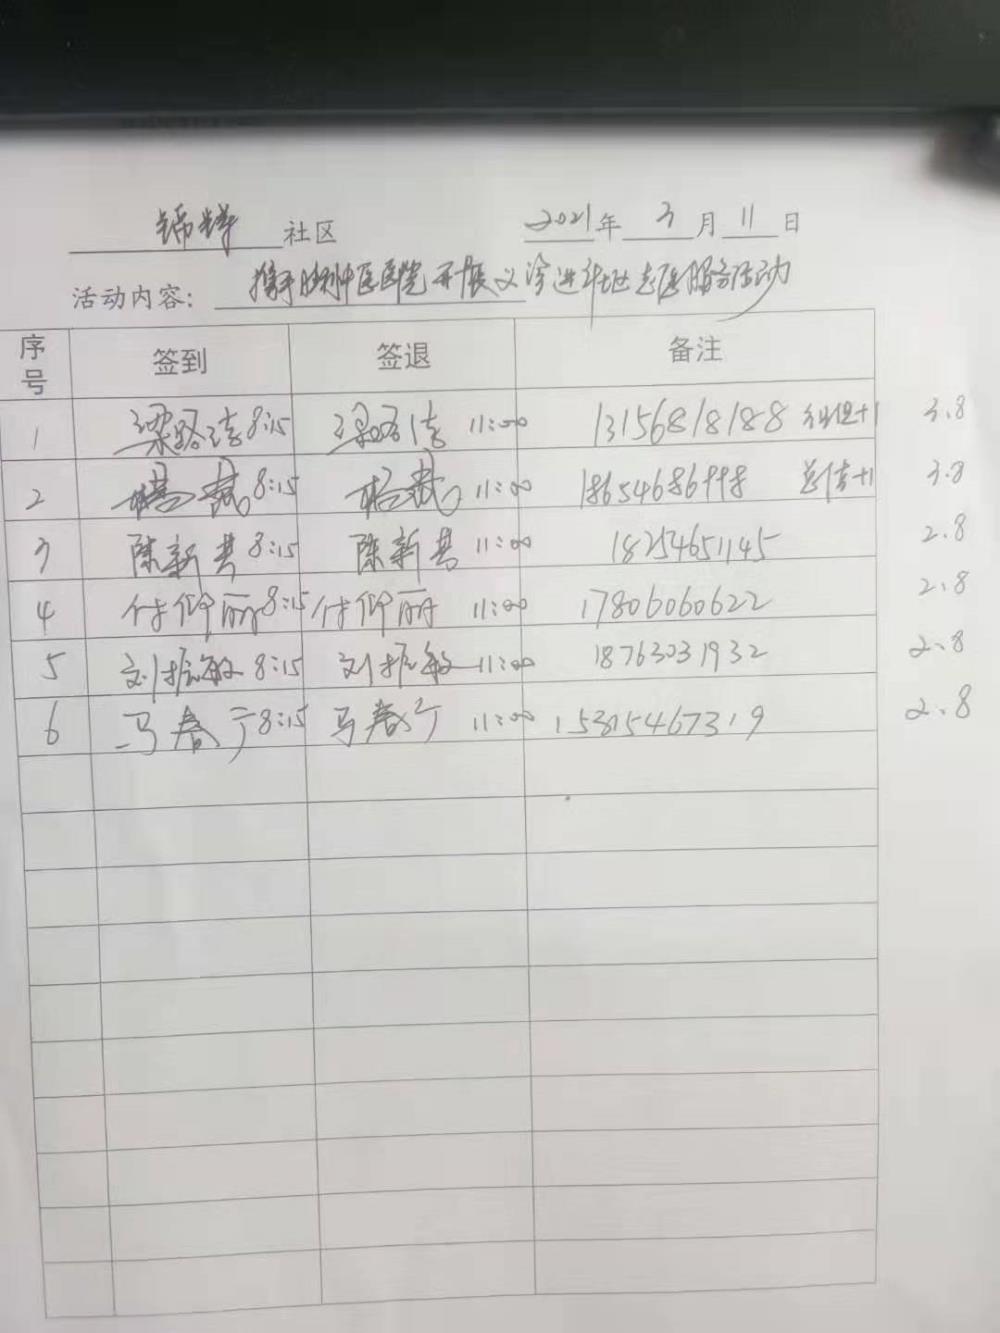 锦华社区 2021年3月11日
活动内容：携手胜利中医医院开展义诊进社区志愿服务活动
序号 签到 签退 备注
1 8:15 11:00 13156818188 +1 3.8
2 杨斌 8:15 杨斌 11:00 18654686998 +1 3.8
3 陈新芳 8:15 陈新芳 11:00 18254651145 2.8
4 付仰丽 8:15 付仰丽 11:00 17806060622 2.8
5 刘振敏 8:15 刘振敏 11:00 18763031932 2.8
6 马春宁 8:15 马春宁 11:00 15305467319 2.8